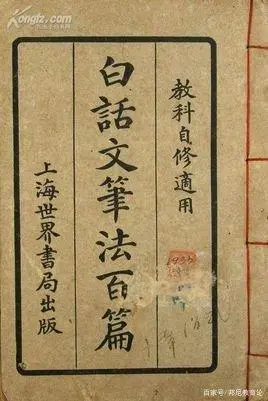 Kongfz.com
教科自修適用
白話文筆法百篇
上海世界書局出版
百家号/邦尼教育论